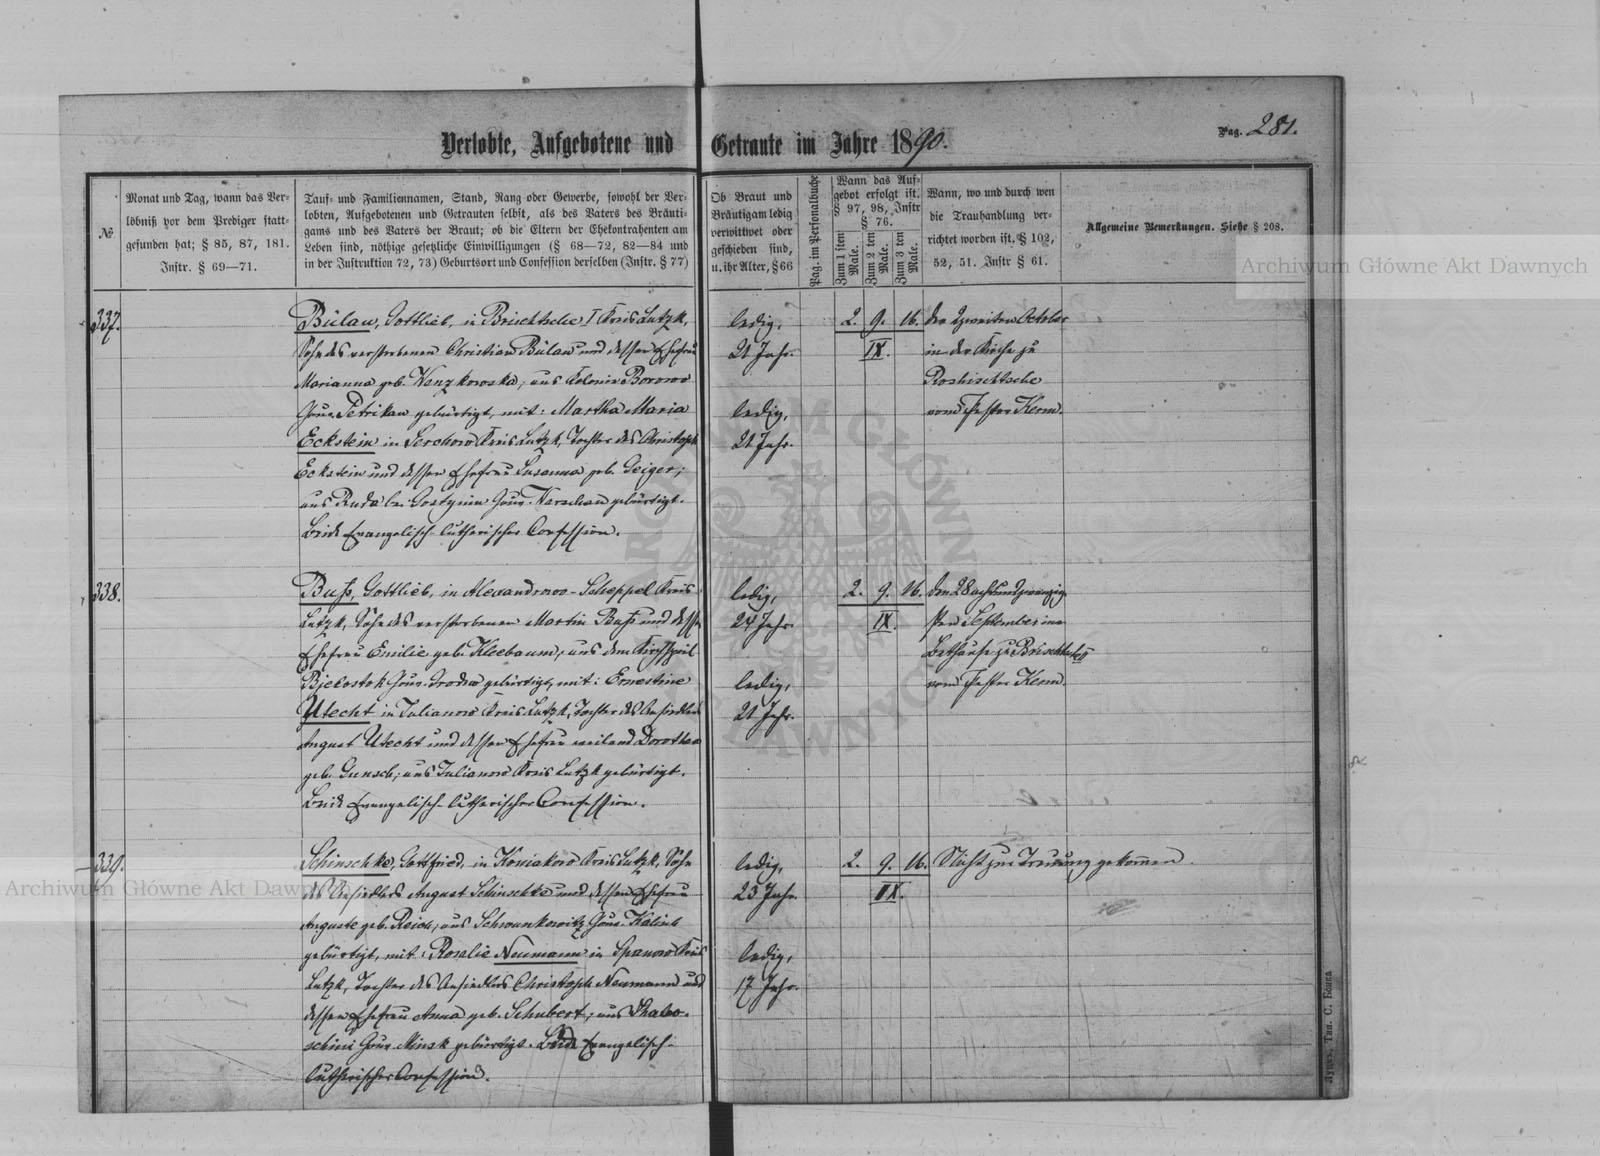 Verlobte, Aufgebotene und Getraute im Jahre 1890.
Pag. 281.
№
Monat und Tag, wann das Ver-
löbniß vor dem Prediger statt-
gefunden hat; § 85, 87, 181.
Instr. § 69—71.
Tauf- und Familiennamen, Stand, Rang oder Gewerbe, sowohl der Ver-
lobten, Aufgebotenen und Getrauten selbst, als des Vaters des Bräuti-
gams und des Vaters der Braut; ob die Eltern der Ehekontrahenten am
Leben sind, nöthige gesetzliche Einwilligungen (§ 68—72, 82—84 und
in der Instruktion 72, 73) Geburtsort und Confession derselben (Instr. § 77)
Ob Braut und
Bräutigam ledig
verwittwet oder
geschieden sind,
u. ihr Alter, § 66
Pag. im Personalbuche
Wann das Auf-
gebot erfolgt ist.
§ 97, 98, Instr
§ 76.
Zum 1 sten Male.
Zum 2 ten Male.
Zum 3 ten Male.
Wann, wo und durch wen
die Trauhandlung ver-
richtet worden ist. § 102,
52, 51. Instr § 61.
Allgemeine Bemerkungen. Siehe § 208.
337.
Bülau, Gottlieb, in Brischtsche I Kreis Lutzk,
Sohn des verstorbenen Christian Bülau und dessen Ehefrau
Marianna geb. Wenzkowska, aus Kolonie Borowo
Gouv. Petrikau gebürtigt, mit: Martha Maria
Eckstein in Serchow Kreis Lutzk, Tochter des Christoph
Eckstein und dessen Ehefrau Susanna geb. Geiger;
aus Ruda bei Gostynin Gouv. Warschau gebürtigt.
Beide Evangelisch-lutherischer Confession.
ledig,
21 Jahr.
ledig,
21 Jahr.
2. 9. 16.
IX.
den zweiten October
in der Kirche zu
Roshischtsche
vom Pastor Kerm.
338.
Buß, Gottlieb, in Alexandrowo-Scheppel Kreis
Lutzk, Sohn des verstorbenen Martin Buß und dessen
Ehefrau Emilie geb. Kleebaum, aus dem Kirchspiel
Bjelostok Gouv. Grodno gebürtigt, mit: Ernestine
Utecht in Julianow Kreis Lutzk, Tochter des Ansiedlers
August Utecht und dessen Ehefrau weiland Dorothea
geb. Gunsch, aus Julianow Kreis Lutzk gebürtigt.
Beide Evangelisch-lutherischer Confession.
ledig,
24 Jahr.
ledig,
21 Jahr.
2. 9. 16.
IX.
den 28 achtundzwanzig-
sten September im
Bethause zu Brischtsche II
vom Pastor Kerm.
339.
Schinschke, Gottfried, in Koniakow Kreis Lutzk, Sohn
des Ansiedlers August Schinschke und dessen Ehefrau
Auguste geb. Reich, aus Schwunkowitz Gouv. Kalisch
gebürtigt, mit: Rosalie Neumann in Spanow Kreis
Lutzk, Tochter des Ansiedlers Christoph Neumann und
dessen Ehefrau Anna geb. Schubert, aus Skabo-
schini Gouv. Minsk gebürtigt. Beide Evangelisch-
lutherischer Confession.
ledig,
23 Jahr.
ledig,
17 Jahr.
2. 9. 16.
IX.
Nicht zur Trauung gekommen.
Archiwum Główne Akt Dawnych
Archiwum Główne Akt Dawnych